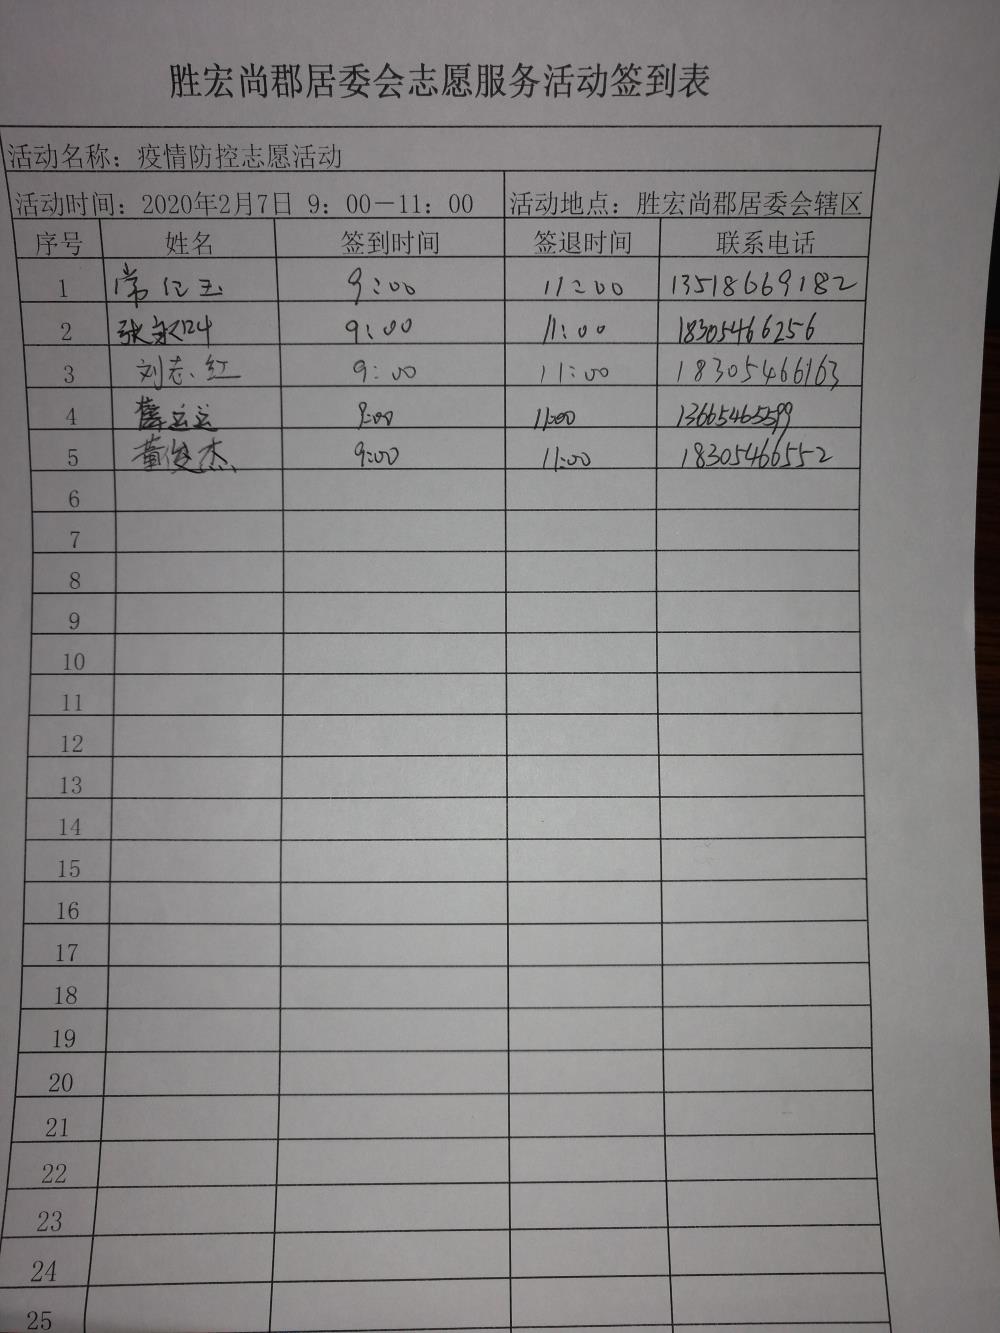 胜宏尚郡居委会志愿服务活动签到表
活动名称：疫情防控志愿活动
活动时间：2020年2月7日 9：00－11：00 活动地点：胜宏尚郡居委会辖区
序号 姓名 签到时间 签退时间 联系电话
1 常仁玉 9:00 11:00 13518669182
2 张 9:00 11:00 18305466256
3 刘志红 9:00 11:00 18305466163
4 薛运运 9:00 11:00 13665465599
5 董俊杰 9:00 11:00 18305466552
6
7
8
9
10
11
12
13
14
15
16
17
18
19
20
21
22
23
24
25